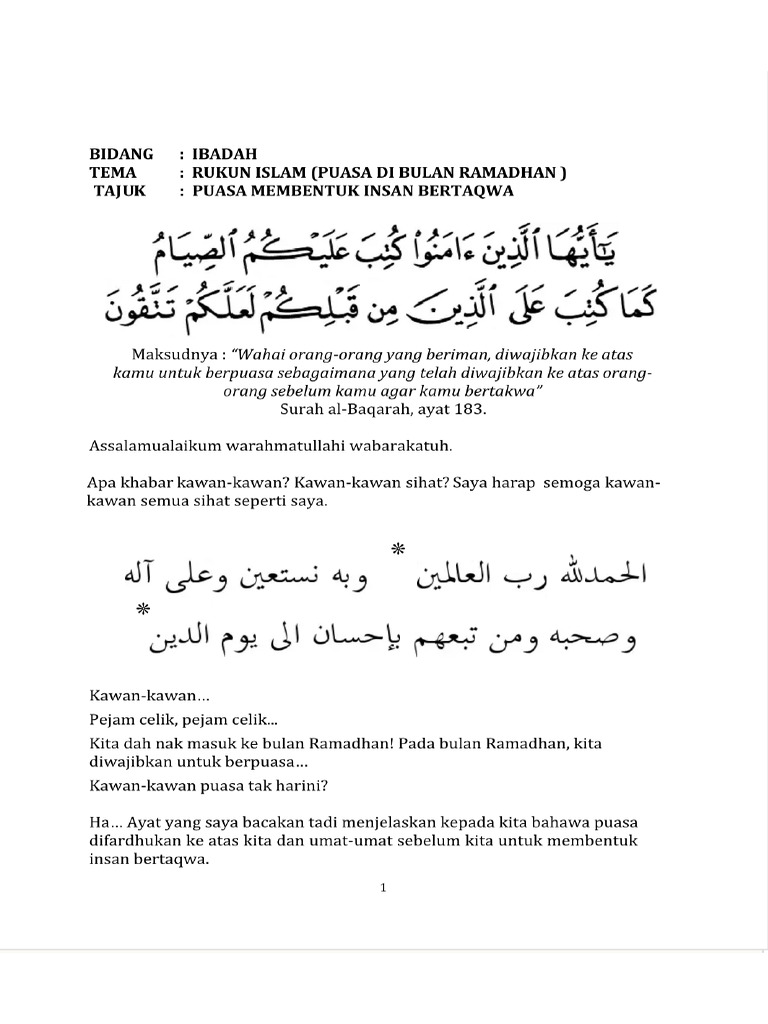 BIDANG : IBADAH
TEMA : RUKUN ISLAM (PUASA DI BULAN RAMADHAN )
TAJUK : PUASA MEMBENTUK INSAN BERTAQWA
يَـٰٓأَيُّهَا ٱلَّذِينَ ءَامَنُوا۟ كُتِبَ عَلَيْكُمُ ٱلصِّيَامُ
كَمَا كُتِبَ عَلَى ٱلَّذِينَ مِن قَبْلِكُمْ لَعَلَّكُمْ تَتَّقُونَ
Maksudnya : “Wahai orang-orang yang beriman, diwajibkan ke atas
kamu untuk berpuasa sebagaimana yang telah diwajibkan ke atas orang-
orang sebelum kamu agar kamu bertakwa”
Surah al-Baqarah, ayat 183.
Assalamualaikum warahmatullahi wabarakatuh.
Apa khabar kawan-kawan? Kawan-kawan sihat? Saya harap semoga kawan-
kawan semua sihat seperti saya.
الحمدلله رب العالمين * وبه نستعين وعلى آله
وصحبه ومن تبعهم بإحسان الى يوم الدين *
Kawan-kawan…
Pejam celik, pejam celik...
Kita dah nak masuk ke bulan Ramadhan! Pada bulan Ramadhan, kita
diwajibkan untuk berpuasa…
Kawan-kawan puasa tak harini?
Ha… Ayat yang saya bacakan tadi menjelaskan kepada kita bahawa puasa
difardhukan ke atas kita dan umat-umat sebelum kita untuk membentuk
insan bertaqwa.
1